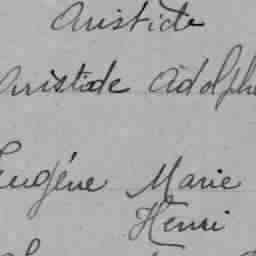 Aristide
Aristide Adolphe
Eugéne Marie
Henri